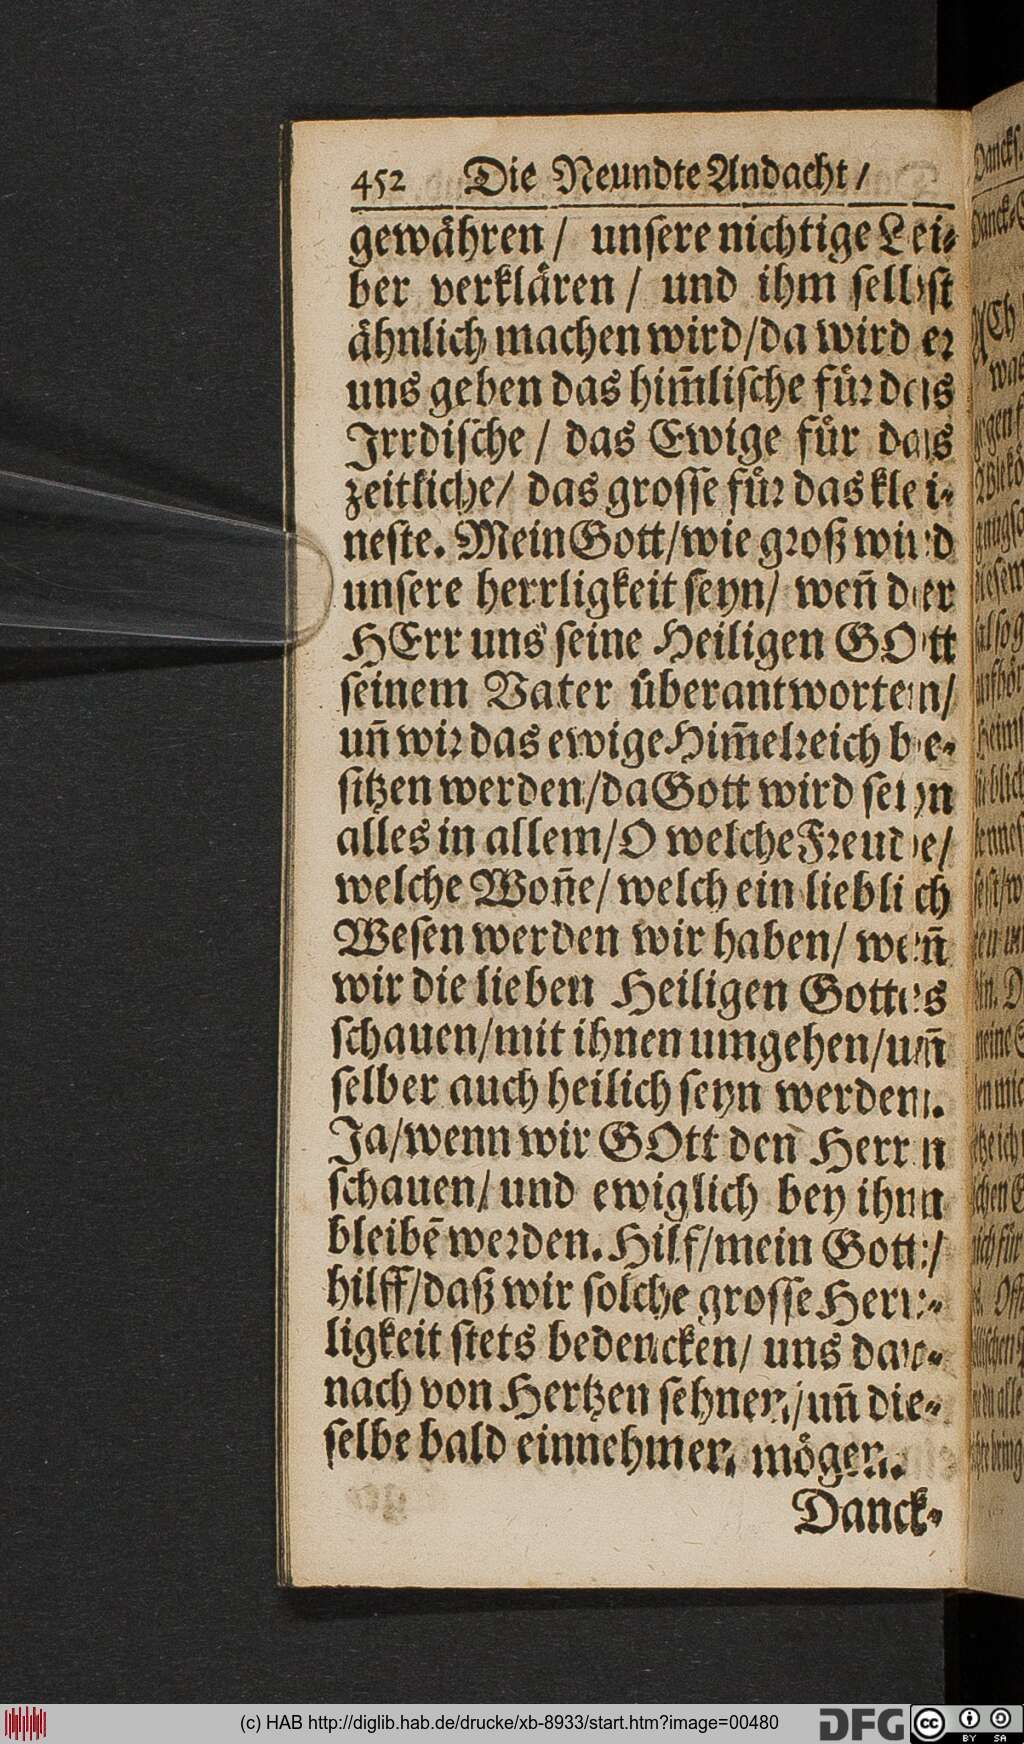 452 Die Neundte Andacht /
gewåhren / unsere nichtige Lei-
ber verklåren / und ihm selbst
åhnlich machen wird/da wird er
uns geben das him̃lische fůr das
Irrdische / das Ewige fůr das
zeitliche/ das grosse fůr das klei-
neste. Mein Gott/wie groß wird
unsere herrligkeit seyn/ weñ der
HErr uns seine Heiligen GOtt
seinem Vater ůberantworten/
uñ wir das ewige Him̃elreich be-
sitzen werden/da Gott wird seyn
alles in allem/O welche Freude/
welche Woñe/ welch ein lieblich
Wesen werden wir haben/ weñ
wir die lieben Heiligen Gottes
schauen/mit ihnen umgehen/uñ
selber auch heilich seyn werden.
Ja/wenn wir GOtt den Herrn
schauen/ und ewiglich bey ihm
bleibẽ werden. Hilf/mein Gott/
hilff/daß wir solche grosse Herr-
ligkeit stets bedencken/ uns dar-
nach von Hertzen sehnen/uñ die-
selbe bald einnehmen mögen.
Danck-
(c) HAB http://diglib.hab.de/drucke/xb-8933/start.htm?image=00480
DFG
cc
BY SA